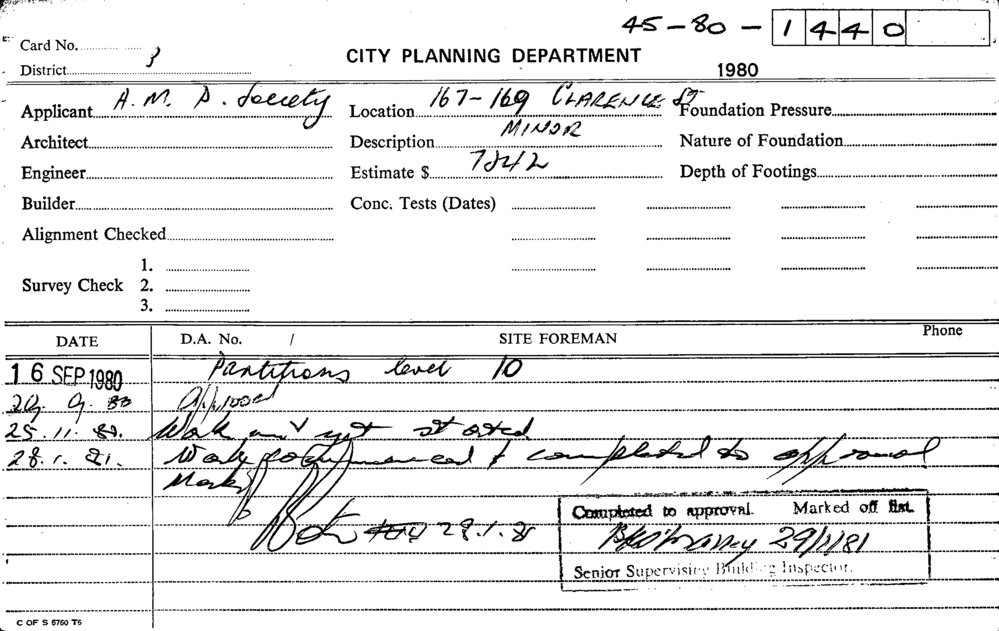 45-80-1440
Card No.
3
District
CITY PLANNING DEPARTMENT
1980
Applicant A. M. P. Society Location 167-169 CLARENCE ST Foundation Pressure
Architect Description MINOR Nature of Foundation
Engineer Estimate $ 7842 Depth of Footings
Builder Conc. Tests (Dates)
Alignment Checked
1.
Survey Check 2.
3.
DATE D.A. No. / SITE FOREMAN Phone
16 SEP 1980 Partitions level 10
29. 9. 80 Approved
25.11.80. Work not yet started
28.1.81. Work commenced & completed to approval
28.1.81
Completed to approval. Marked off list.
29/1/81
Senior Supervising Building Inspector.
C OF S 6760 T6